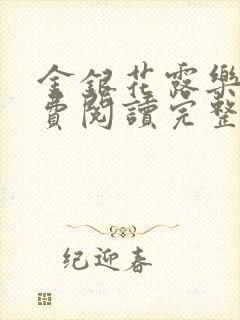 金銀花露樂
費閱讀完整
纪迎春